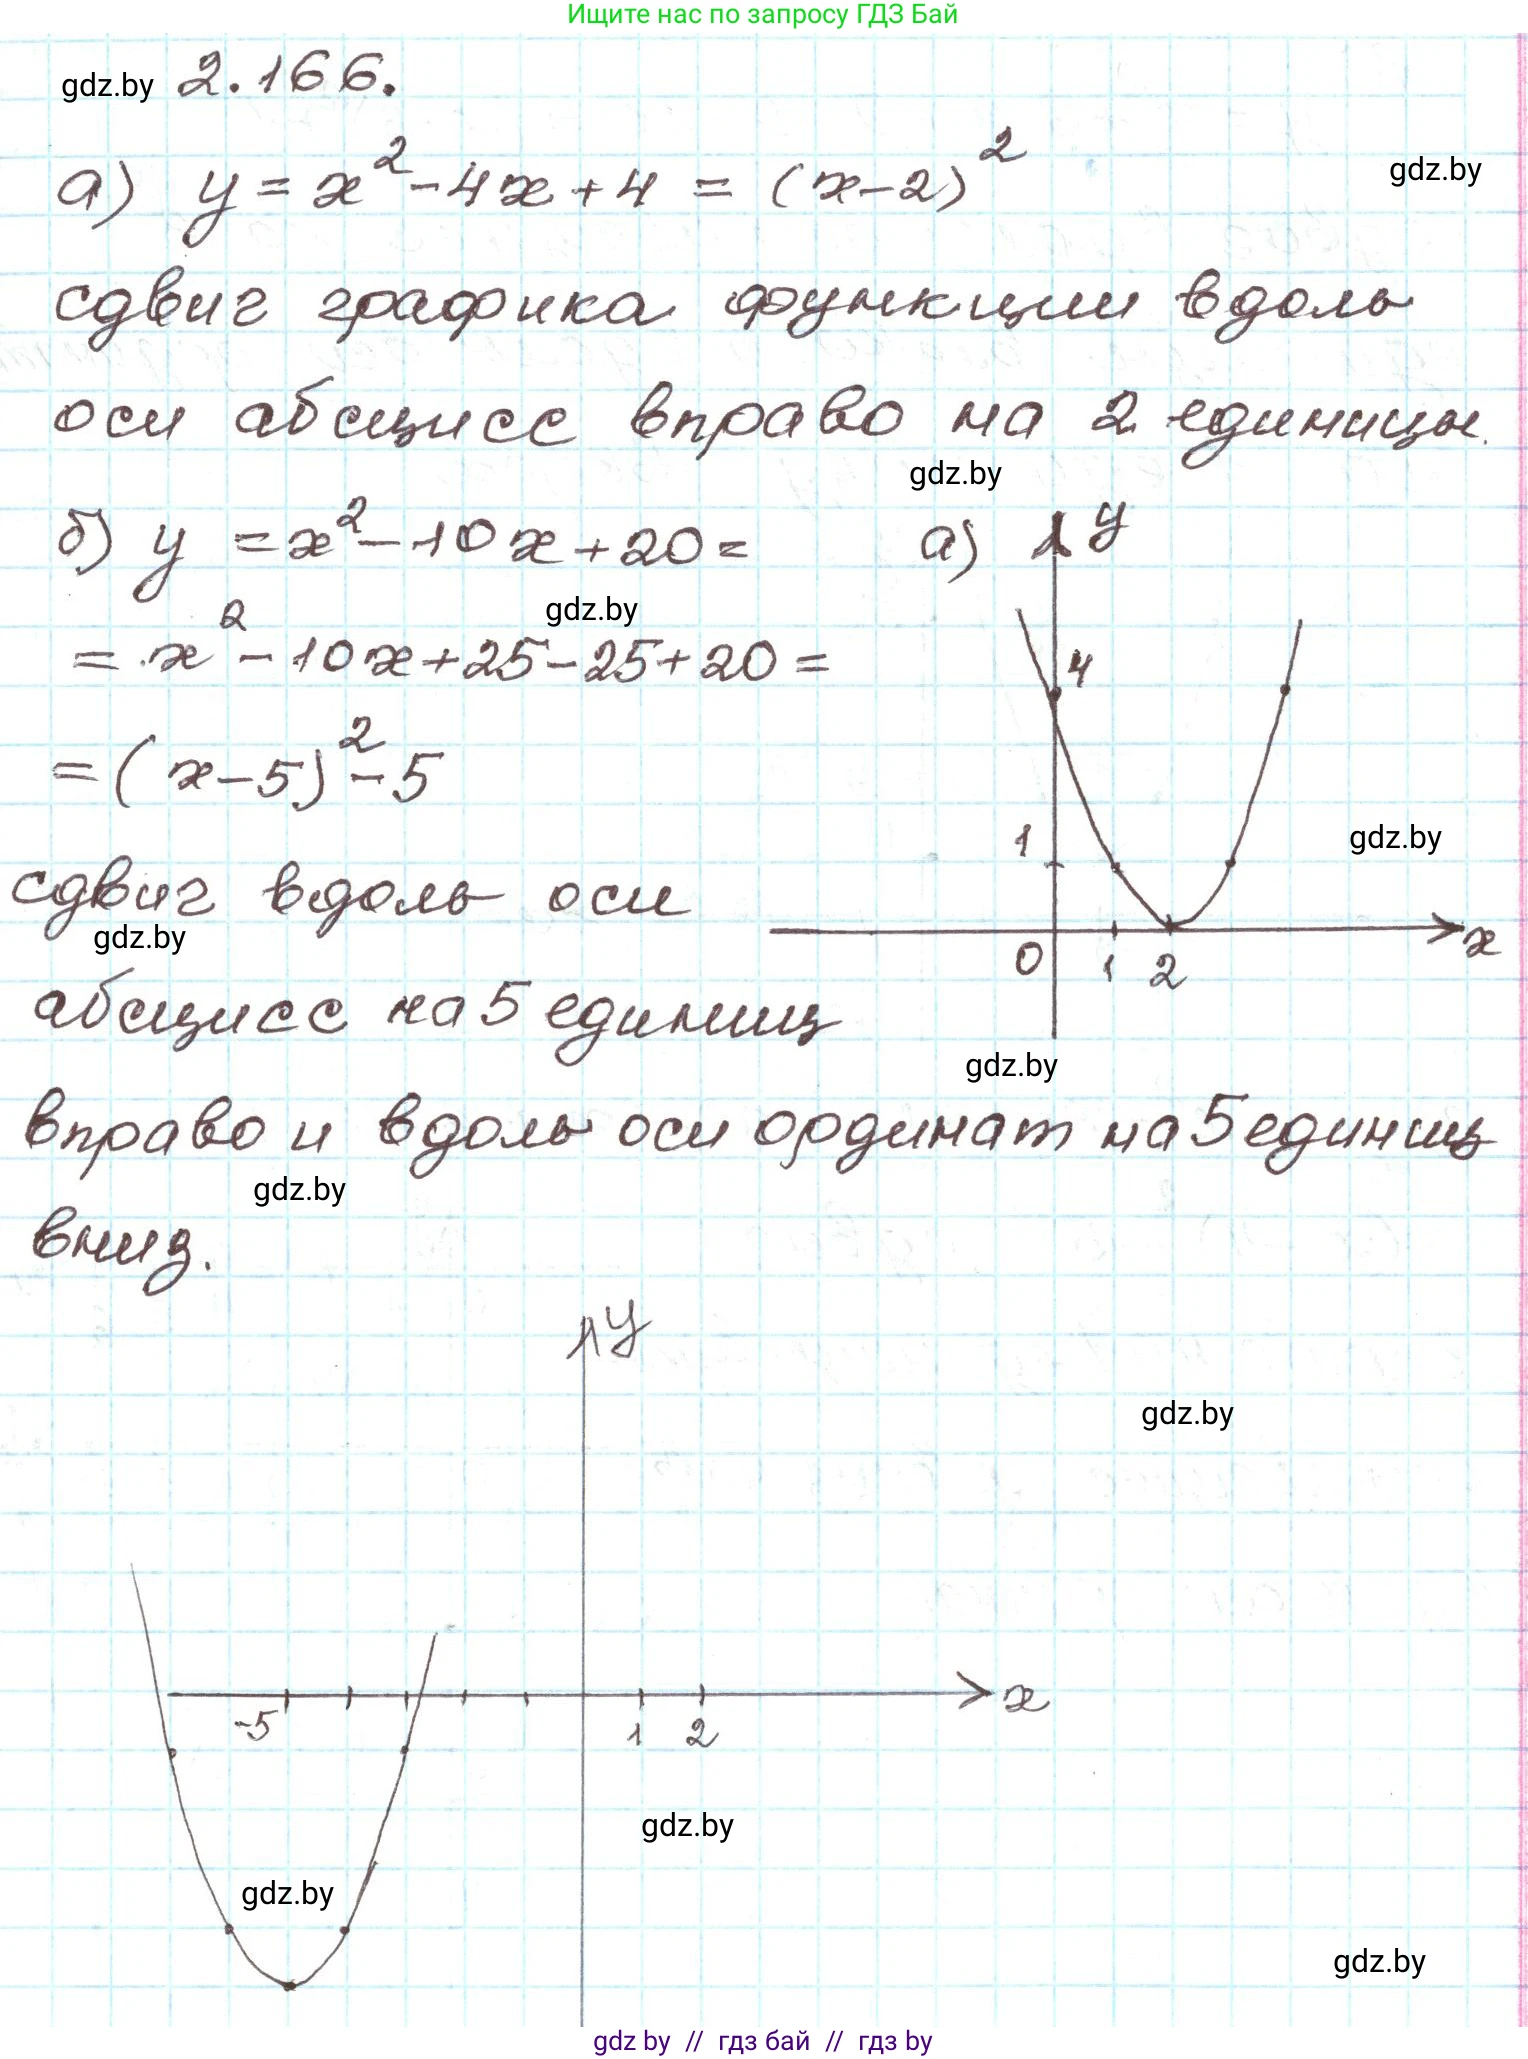 Ищите нас по запросу ГДЗ Бай
gdz.by 2.166.
а) y = x² - 4x + 4 = (x - 2)²
gdz.by
сдвиг графика функции вдоль
оси абсцисс вправо на 2 единицы.
gdz.by
б) y = x² - 10x + 20 =
gdz.by
= x² - 10x + 25 - 25 + 20 =
= (x - 5)² - 5
сдвиг вдоль оси
gdz.by
абсцисс на 5 единиц
а) y
4
1
gdz.by
0 1 2 x
gdz.by
вправо и вдоль оси ординат на 5 единиц
gdz.by
вниз.
y
gdz.by
-5 1 2 x
gdz.by
gdz.by
gdz.by
gdz by // гдз бай // гдз by